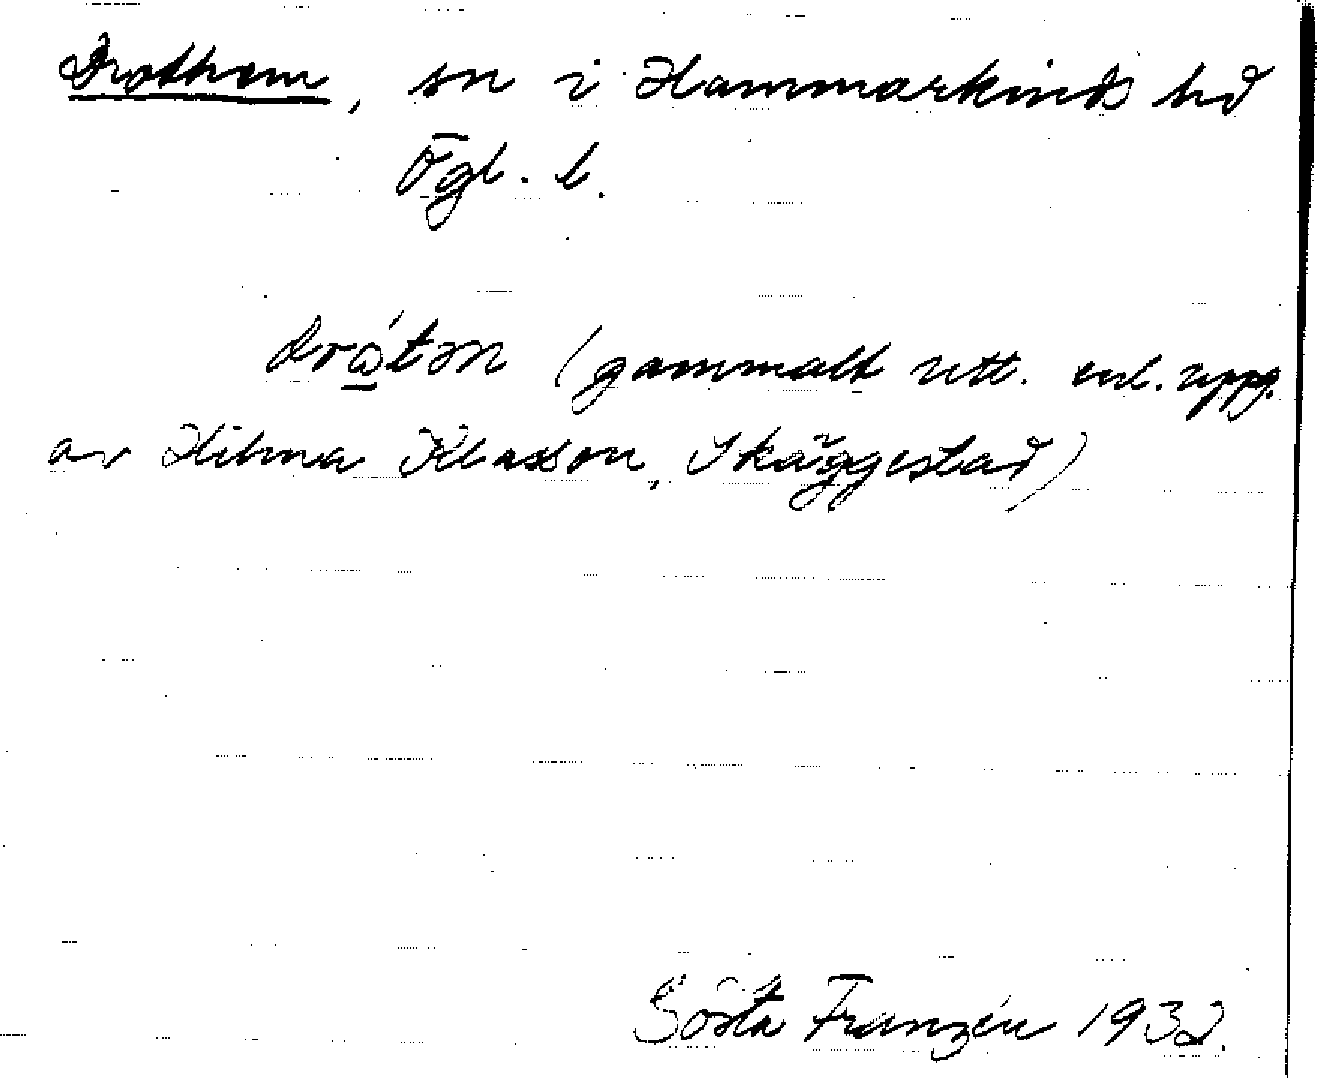 Drothem, sn i Hammarkinds hd
Ögl. l.
drɷ́təm (gammalt utt. enl. uppg.
av Hilma Klasson, Skäggestad)
Gösta Franzén 1932.